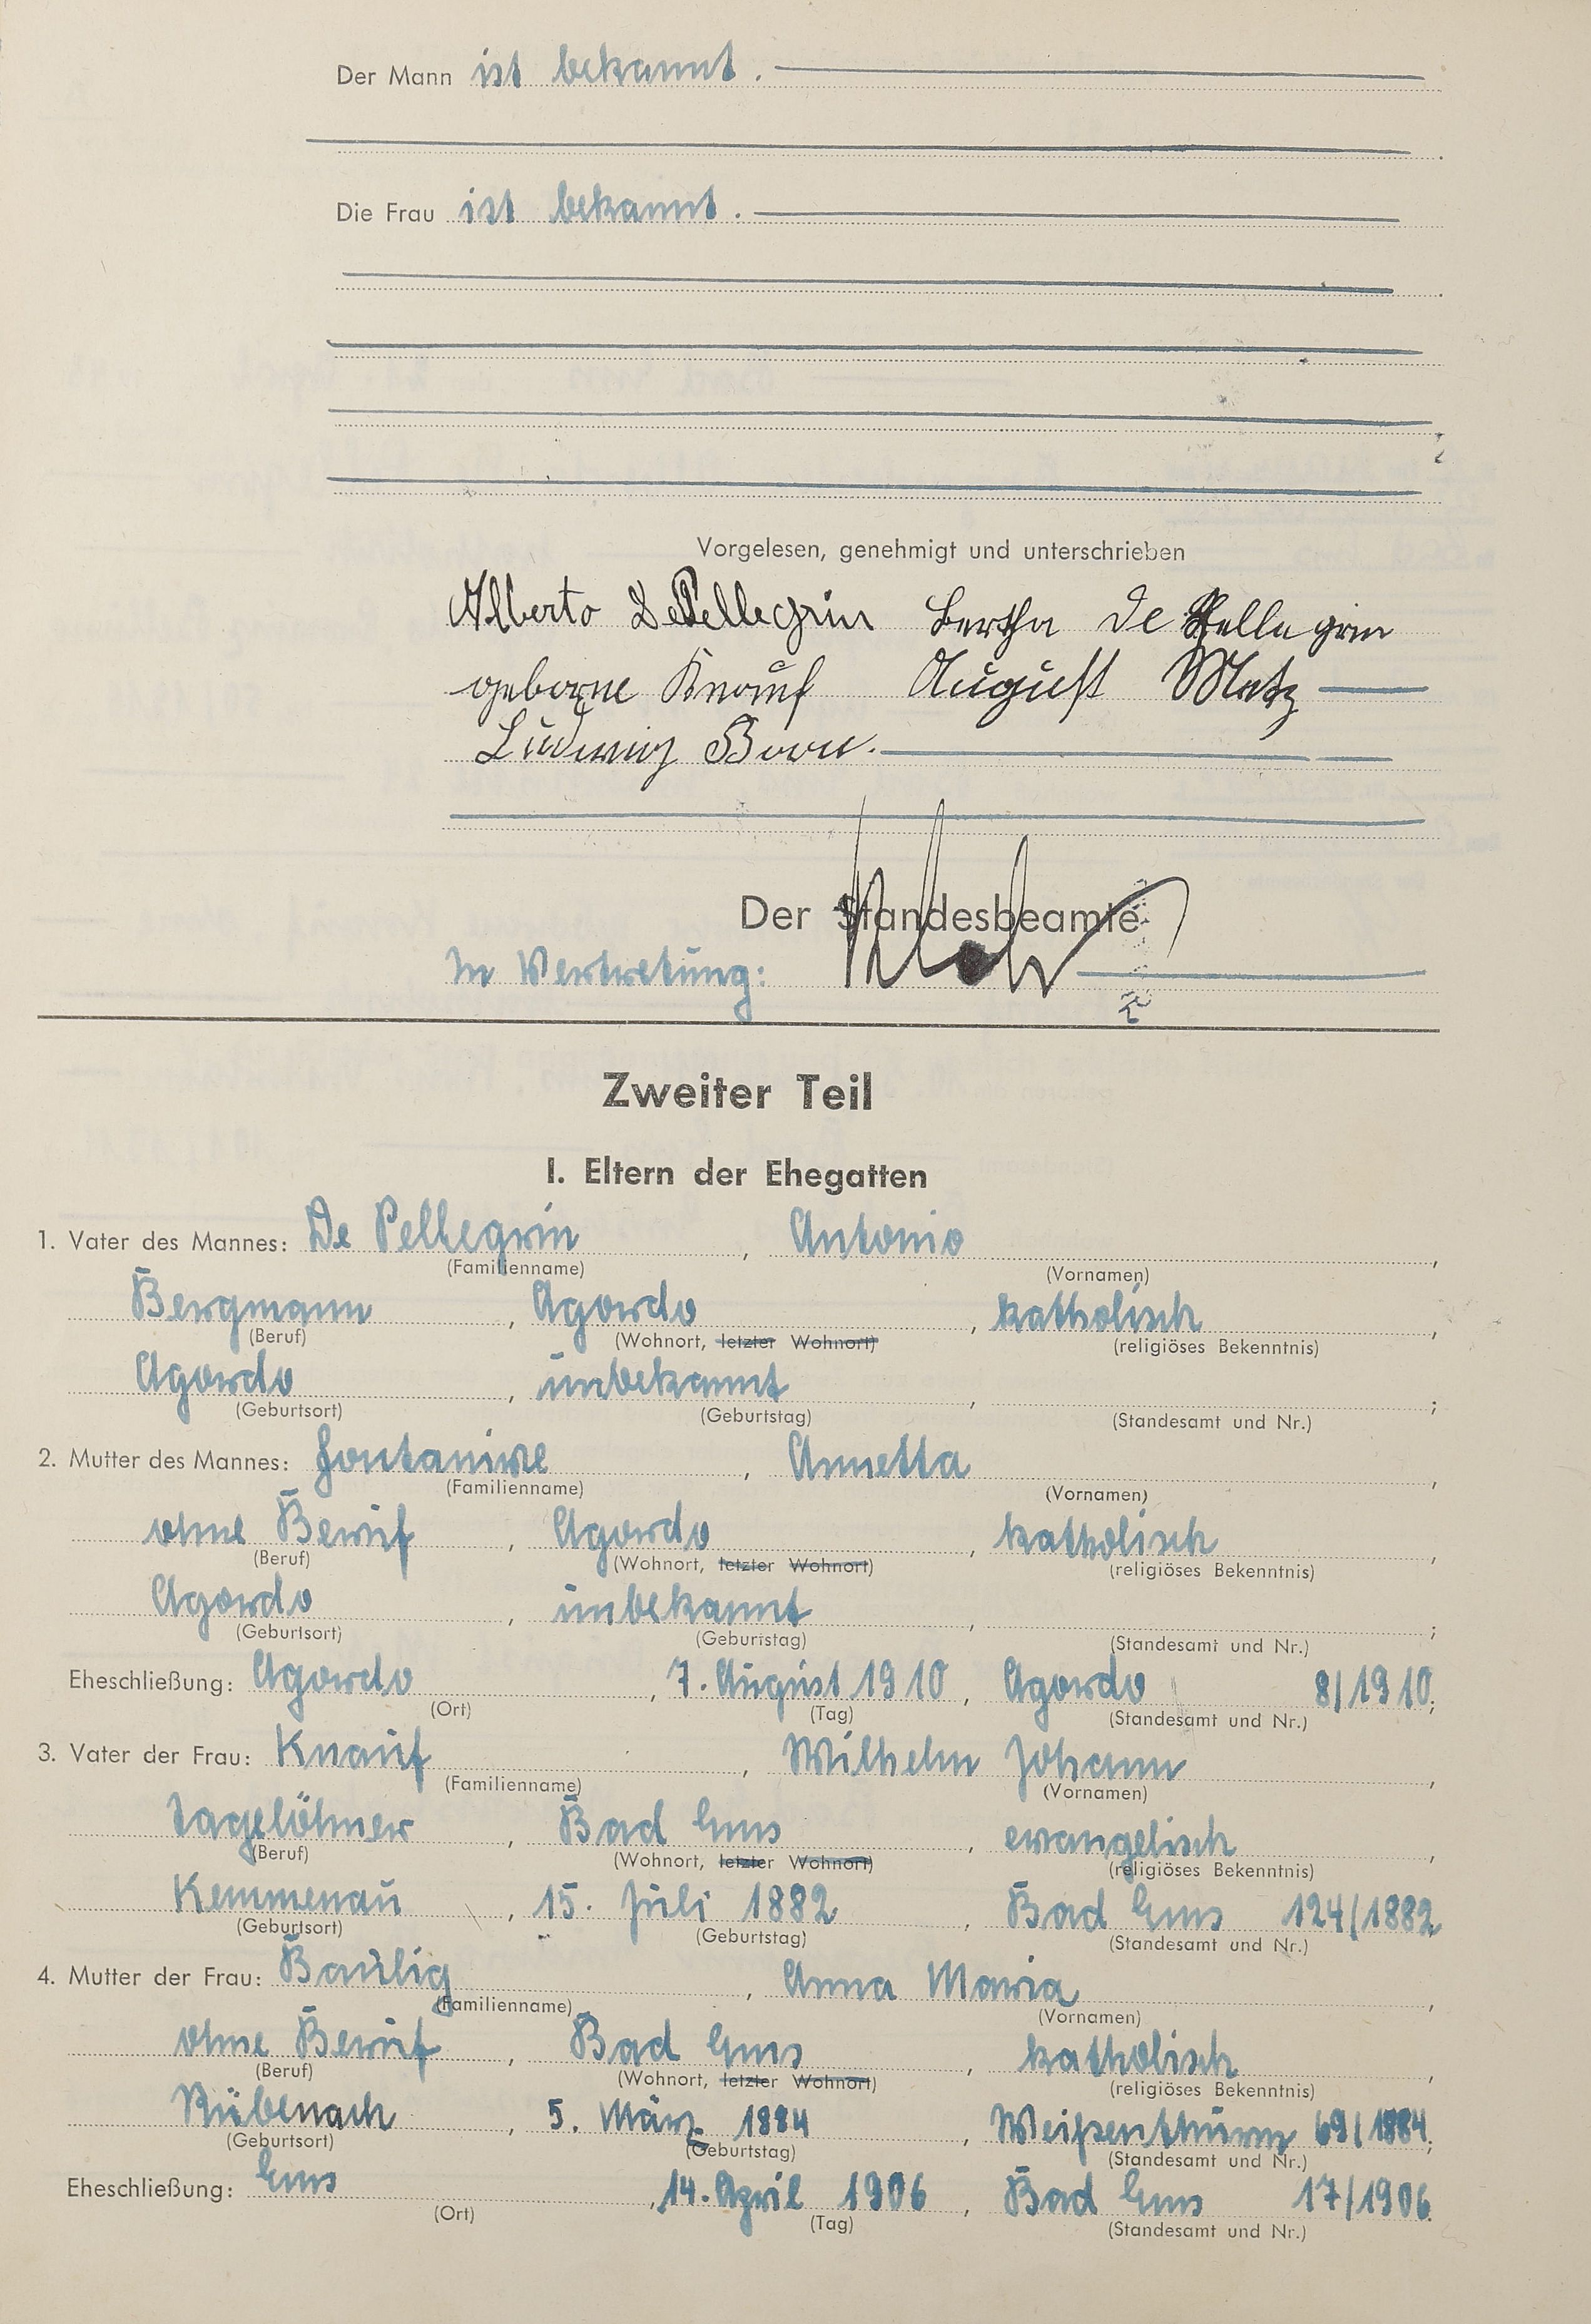 Der Mann ist bekannt.
Die Frau ist bekannt.
Vorgelesen, genehmigt und unterschrieben
Alberto De Pellegrin Bertha De Pellegrin
geborne Knauf August Metz
Ludwig
Der Standesbeamte
In Vertretung:
Zweiter Teil
I. Eltern der Ehegatten
1. Vater des Mannes: De Pellegrin, Antonio,
(Familienname) (Vornamen)
Bergmann, Agordo, katholisch,
(Beruf) (Wohnort, letzter Wohnort) (religiöses Bekenntnis)
Agordo, unbekannt, ;
(Geburtsort) (Geburtstag) (Standesamt und Nr.)
2. Mutter des Mannes: Fontanive, Annetta,
(Familienname) (Vornamen)
ohne Beruf, Agordo, katholisch,
(Beruf) (Wohnort, letzter Wohnort) (religiöses Bekenntnis)
Agordo, unbekannt, ;
(Geburtsort) (Geburtstag) (Standesamt und Nr.)
Eheschließung: Agordo, 7. August 1910, Agordo 8/1910;
(Ort) (Tag) (Standesamt und Nr.)
3. Vater der Frau: Knauf, Wilhelm Johann,
(Familienname) (Vornamen)
Tagelöhner, Bad Ems, evangelisch,
(Beruf) (Wohnort, letzter Wohnort) (religiöses Bekenntnis)
Kemmenau, 15. Juli 1882, Bad Ems 124/1882
(Geburtsort) (Geburtstag) (Standesamt und Nr.)
4. Mutter der Frau: Baulig, Anna Maria,
(Familienname) (Vornamen)
ohne Beruf, Bad Ems, katholisch,
(Beruf) (Wohnort, letzter Wohnort) (religiöses Bekenntnis)
Rübenach, 5. März 1884, Weißenthurm 69/1884;
(Geburtsort) (Geburtstag) (Standesamt und Nr.)
Eheschließung: Ems, 14. April 1906, Bad Ems 17/1906.
(Ort) (Tag) (Standesamt und Nr.)